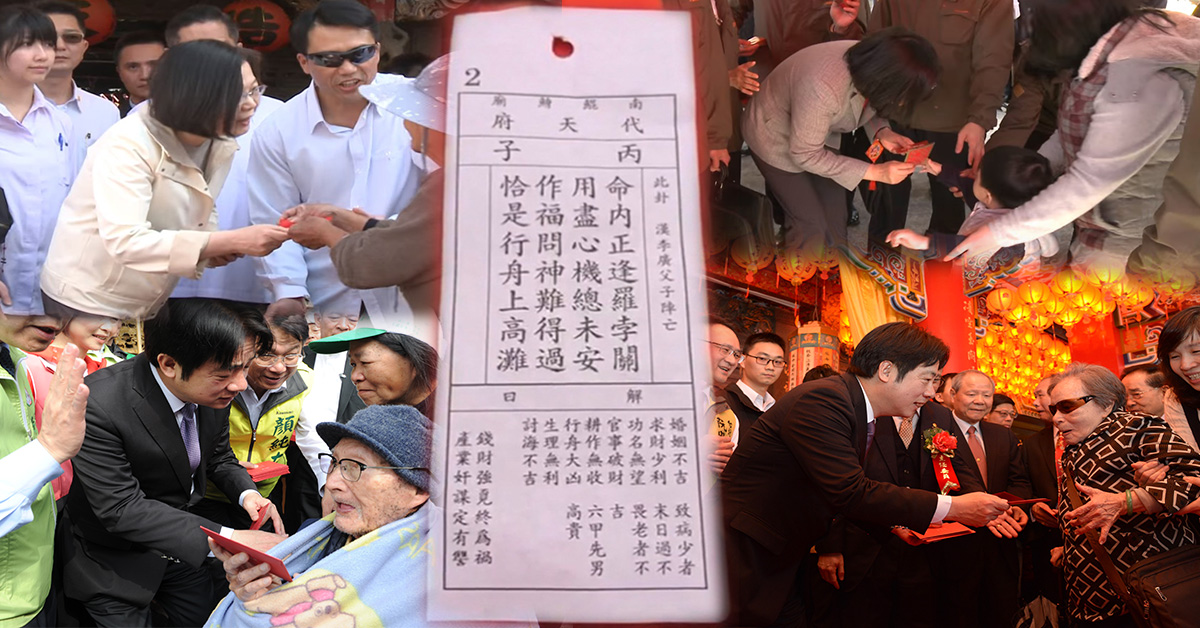 2
南鯤鯓廟
代天府
丙子
此卦 漢李廣父子陣亡
命內正逢羅孛關
用盡心機總未安
作福問神難得過
恰是行舟上高灘
解曰
婚姻不吉 致病少者
求財少利 末日過不
功名無望 畏老者不
官事破財 吉
耕作無收 六甲先男
行舟大凶 高貴
生理無利
討海不吉
錢財強覓終爲禍
產業奸謀定有釁
顏純